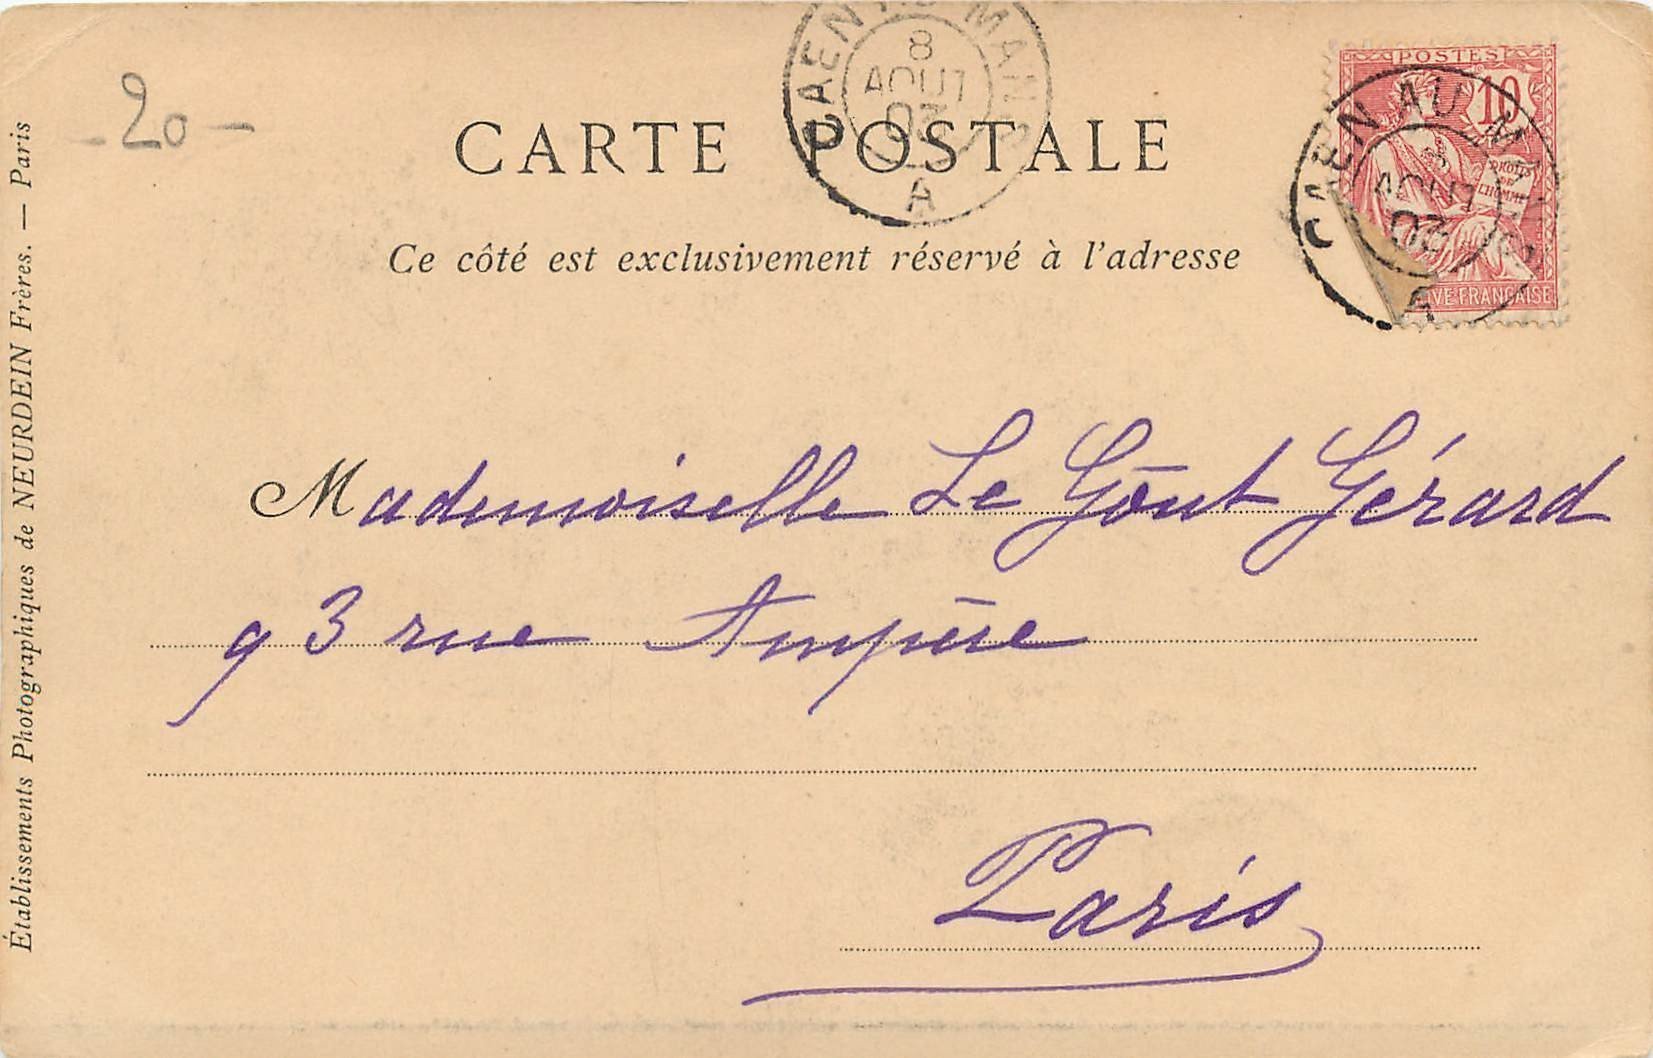 CAEN AU MANS
8
AOUT
03
A
- 20 -
CARTE POSTALE
Ce côté est exclusivement réservé à l'adresse
POSTES
10
DROITS
DE
L'HOMME
CAEN AU MANS
8
AOUT
03
A
IVE FRANÇAISE
Mademoiselle Le Goût Gérard
93 rue Ampère
Paris
Établissements Photographiques de NEURDEIN Frères. — Paris